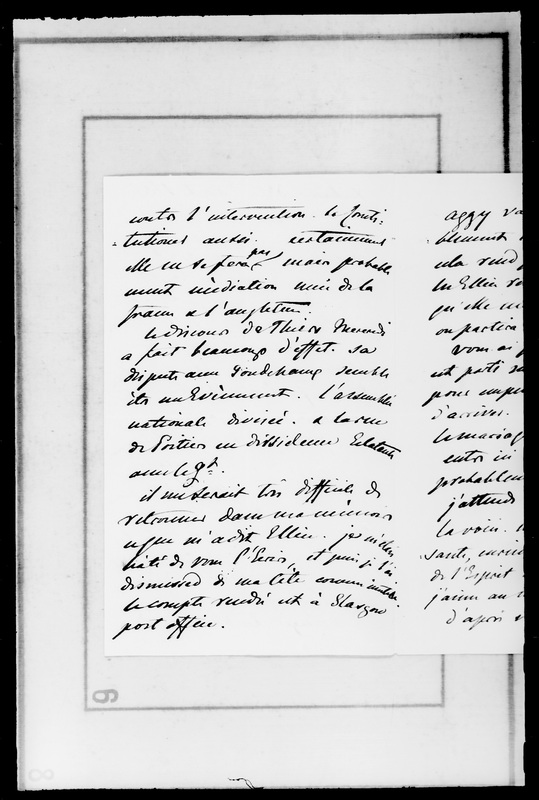 contre l'intervention. le Consti-
-tutionel aussi. certainement
elle ne se fera pas mais probable
ment médiation unie de la
france & l'angleterre.
le discours de Thiers Mercredi
a fait beaucoup d'effet. sa
dispute avec Goudchaux semble
être un Evènement. l'assemblée
nationale divisée. & la rue
de Poitiers en dissidence Eclatante
avec le gt.
il me serait très difficile de
retrouver dans ma mémoire
ce que m'a dit Ellice. je m'étais
hâté de vous l'Ecrire, et puis je l'ai
dismissed de ma tête comme inutile.
le compte rendu est à Glasgow
post office.
aggy
blement
cela
Mr Ellice
qu'elle
on partira
vous ai
est parti
pour
d'arriver.
le mariage
entre ici
probablement
j'attends
la voici.
santé,
de l'Esprit
j'aime au
d'après
6
8